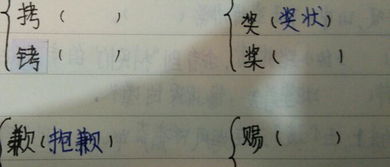 拷（　　） 奖（奖状）
铐（　　） 桨（　　）
歉（抱歉） 赐（　　）